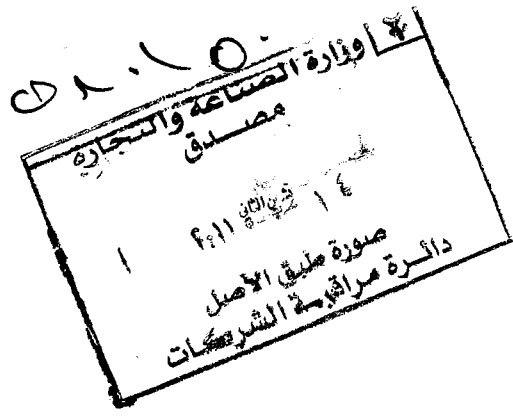 وزارة الصناعة والتجارة
مصدق
١٤ تشرين الثاني ٢٠١١
صورة طبق الأصل
دائرة مراقبة الشركات